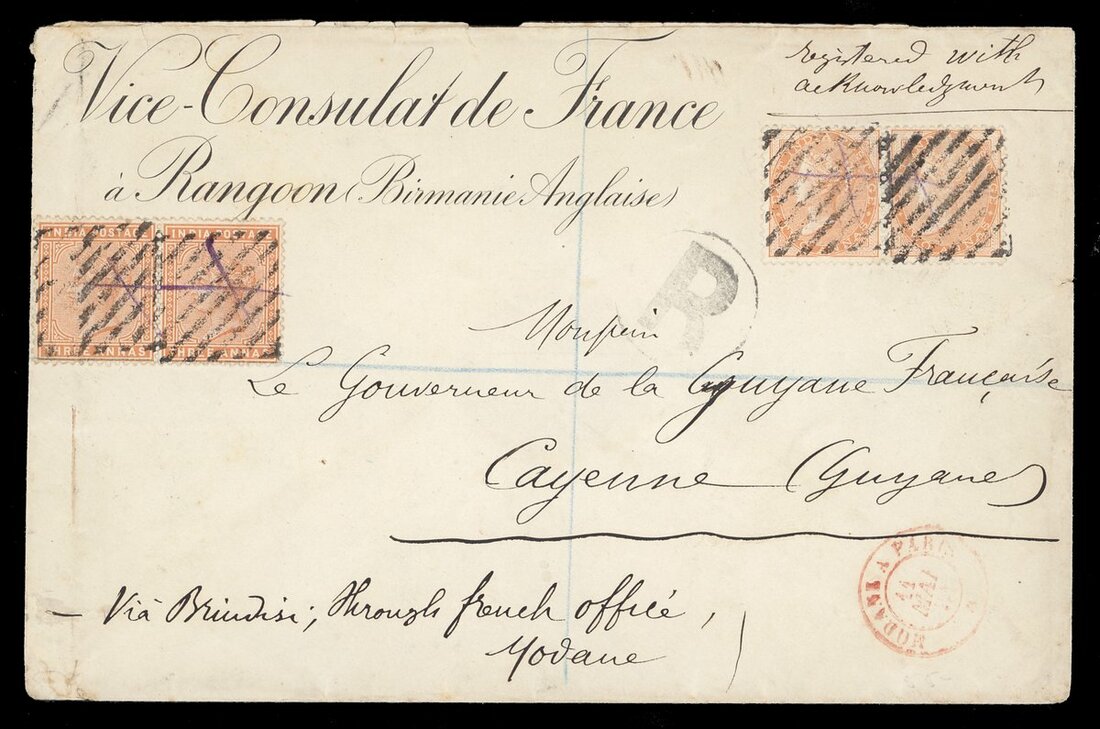 Vice-Consulat de France
à Rangoon (Birmanie Anglaise)
registered with
acknowledgment
INDIA POSTAGE INDIA POSTAGE
THREE ANNAS THREE ANNAS
R
Monsieur
Le Gouverneur de la Guyane Française
Cayenne (Guyane)
MODANE A PARIS
MAI
— Via Brindisi; through french office,
Modane